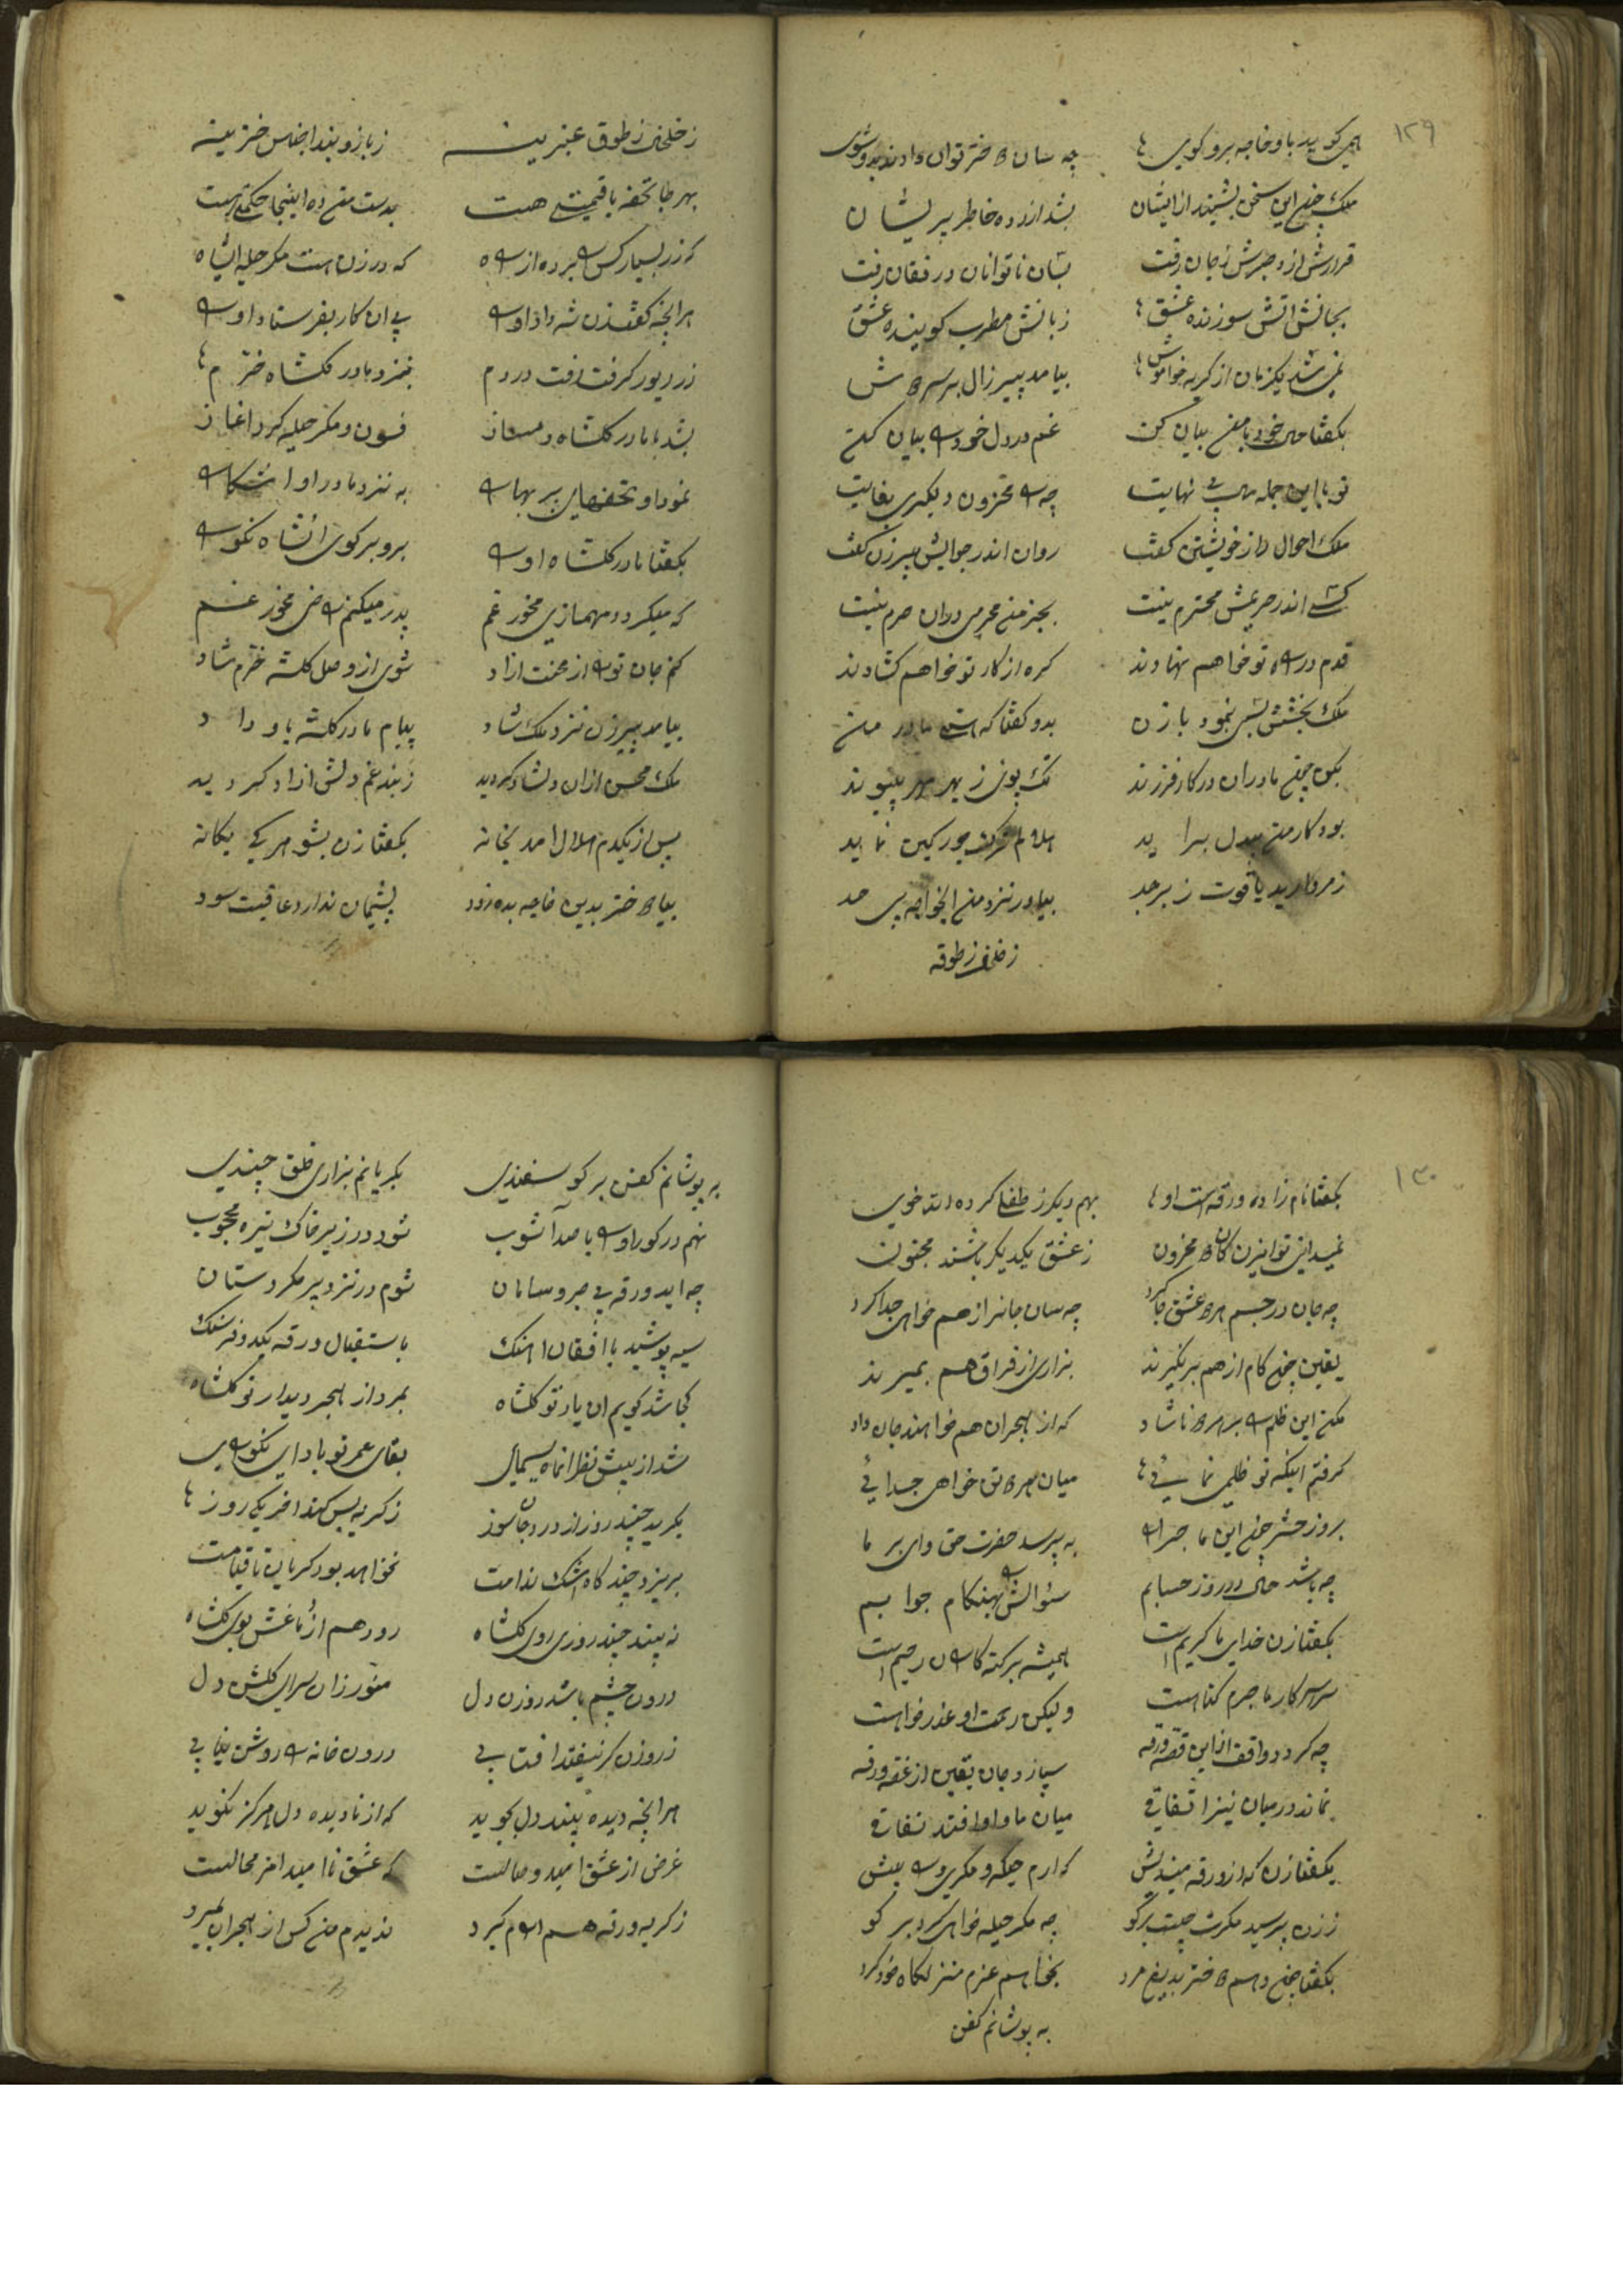 ۱۲۹
همی گوید باو خاجه برو کوی چه سان دختر توان دادن بدو شوی
ملک چون این سخن بشنید از ایشان بشد ازرده خاطر پریشان
قرارش از دو صبرش ز جان رفت بسان ناتوانان در فغان رفت
بجانش اتش سوزنده عشق زبانش مطرب گوینده عشق
نمی شد یکزمان از گریه خواموش بیامد پیرزال بر سر
بگفتا حال خود با من بیان کن غم درد دل خود بیان کن
تو با این جمله بی نهایت چه محزون دیگری بغایت
ملک احوال راز خویشتن گفت روان اندر جوابش پیرزن گفت
کسی اندر حریمش محترم نیست بجز من محرمی در ان حرم نیست
قدم در تو خواهم نهادند گره از کار تو خواهم گشادند
ملک بخشش بسی نمود با زن بدو گفتا که مادر من
بکن چون مادران در کار فرزند تک پوی ز بهر مهر پیوند
بود کار من بیدل براید نماید
ز مروارید یاقوت زبرجد بیاور نزد من ایخواجه بی حد
ز خلخال ز طوق
ز خلخال ز طوق عنبرینه ز بازوبند اجناس خزینه
بهر جا تحفه با قیمتی هست بدست من ده اینجا حکمتی هست
که زر بسیار کس برده از راه که در زن هست مکر حیله ایشاه
هر انچه گفت زن شه داد او را پی ان کار بفرستاد او را
زر و زیور گرفت رفت در دم بنزد مادر گلشاه خرم
بشد با مادر گلشاه دمساز فسون و مکر حیله کرد اغاز
نمود او تحفهای پر بها را به نزد مادر او اشکارا
بگفتا مادر گلشاه او را برو بر گوی انشاه نکو را
که میگردد مهمسازی مخور غم پدر میکنم راضی مخور غم
کنم جان تو از محنت ازاد شوی از وصل گلشه خرم شاد
بیامد پیرزن نزد ملک شاد پیام مادر گلشه باو داد
ملک محسن ازان دلشاد گردید ز بند غم دلش ازاد گردید
پس از یکدم هلال امد بخانه بگفتا زن بشوهر کی یگانه
بیا دختر بدین خاجه بده زود پشیمان ندارد عاقبت سود
۱۳۰
بگفتا نام زاده ورقه است او بهم دیگر ز طفلی کرده اند خوی
نمیدانی تو ایزن کان محزون ز عشق یکدیگر باشند مجنون
چه جان در جسم هر عشق جا کرد چه سان جانرا ز هم خواهی جدا کرد
یقین چون کام از هم بر نگیرند بزاری از فراق هم بمیرند
مکن این ظلم بر هر ناشاد که از هجران هم خواهند جان داد
گرفتم اینکه تو ظلمی نمایی میان هر تن خواهی جدایی
بروز حشر چون این ماجرا را به پرسد حضرت حق وای بر ما
چه باشد حال در روز حسابم سئوالش را بهنگام جوابم
بگفتا زن خدای ما کریم است همیشه بر گنه کاران رحیم است
سراسر کار ما جرم گناه است ولیکن رحمت او عذر خواه است
چه گردد واقف از این قصه ورقه سپارد جان یقین از غصه ورقه
نماند در میان نیز اتفاقی میان ما و او افتد نفاقی
بگفتا زن که از ورقه میندیش که ارم حیله و مکری را پیش
ز زن پرسید مکرت چیست برگو چه مکر حیله خواهی کرد بر گو
بگفتا چون دهم دختر بدین مرد بخواهم عزم منزلگاه خود کرد
به پوشانم کفن
به پوشانم کفن بر گوسفندی بگریانم بزاری خلق چندی
نهم در گور او را با صد آشوب شود در زیر خاک تیره محجوب
چه اید ورقه بی صبر و سامان شوم در نزد پیر مکر دستان
سیه پوشید با افغان اهنگ باستقبال ورقه یکدو فرسنگ
کجا شد گویم ان یار تو گلشاه بمرد از هجر دیدار تو گلشاه
شد از پیش نظر انماه سیمای بقای عمر تو باد ای نکو رای
بگرید چند روز از درد جان سوز ز گریه بس کند اخر یکی روز
بریزد چند گاه اشک ندامت نخواهد بود گریان تا قیامت
نه بیند چند روزی روی گلشاه رود هم از دماغش بوی گلشاه
درون چشم باشد روزن دل منور زان سرای گلشن دل
ز روزن گر نیفتد افتابی درون خانه را روشن نیابی
هر انچه دیده بیند دل بجوید که از نادیده دل هرگز نگوید
غرض از عشق امید وصالست که عشق نا امید اخر محالست
ز گریه ورقه هم ارام گیرد ندیدم من کس از هجران بمیرد